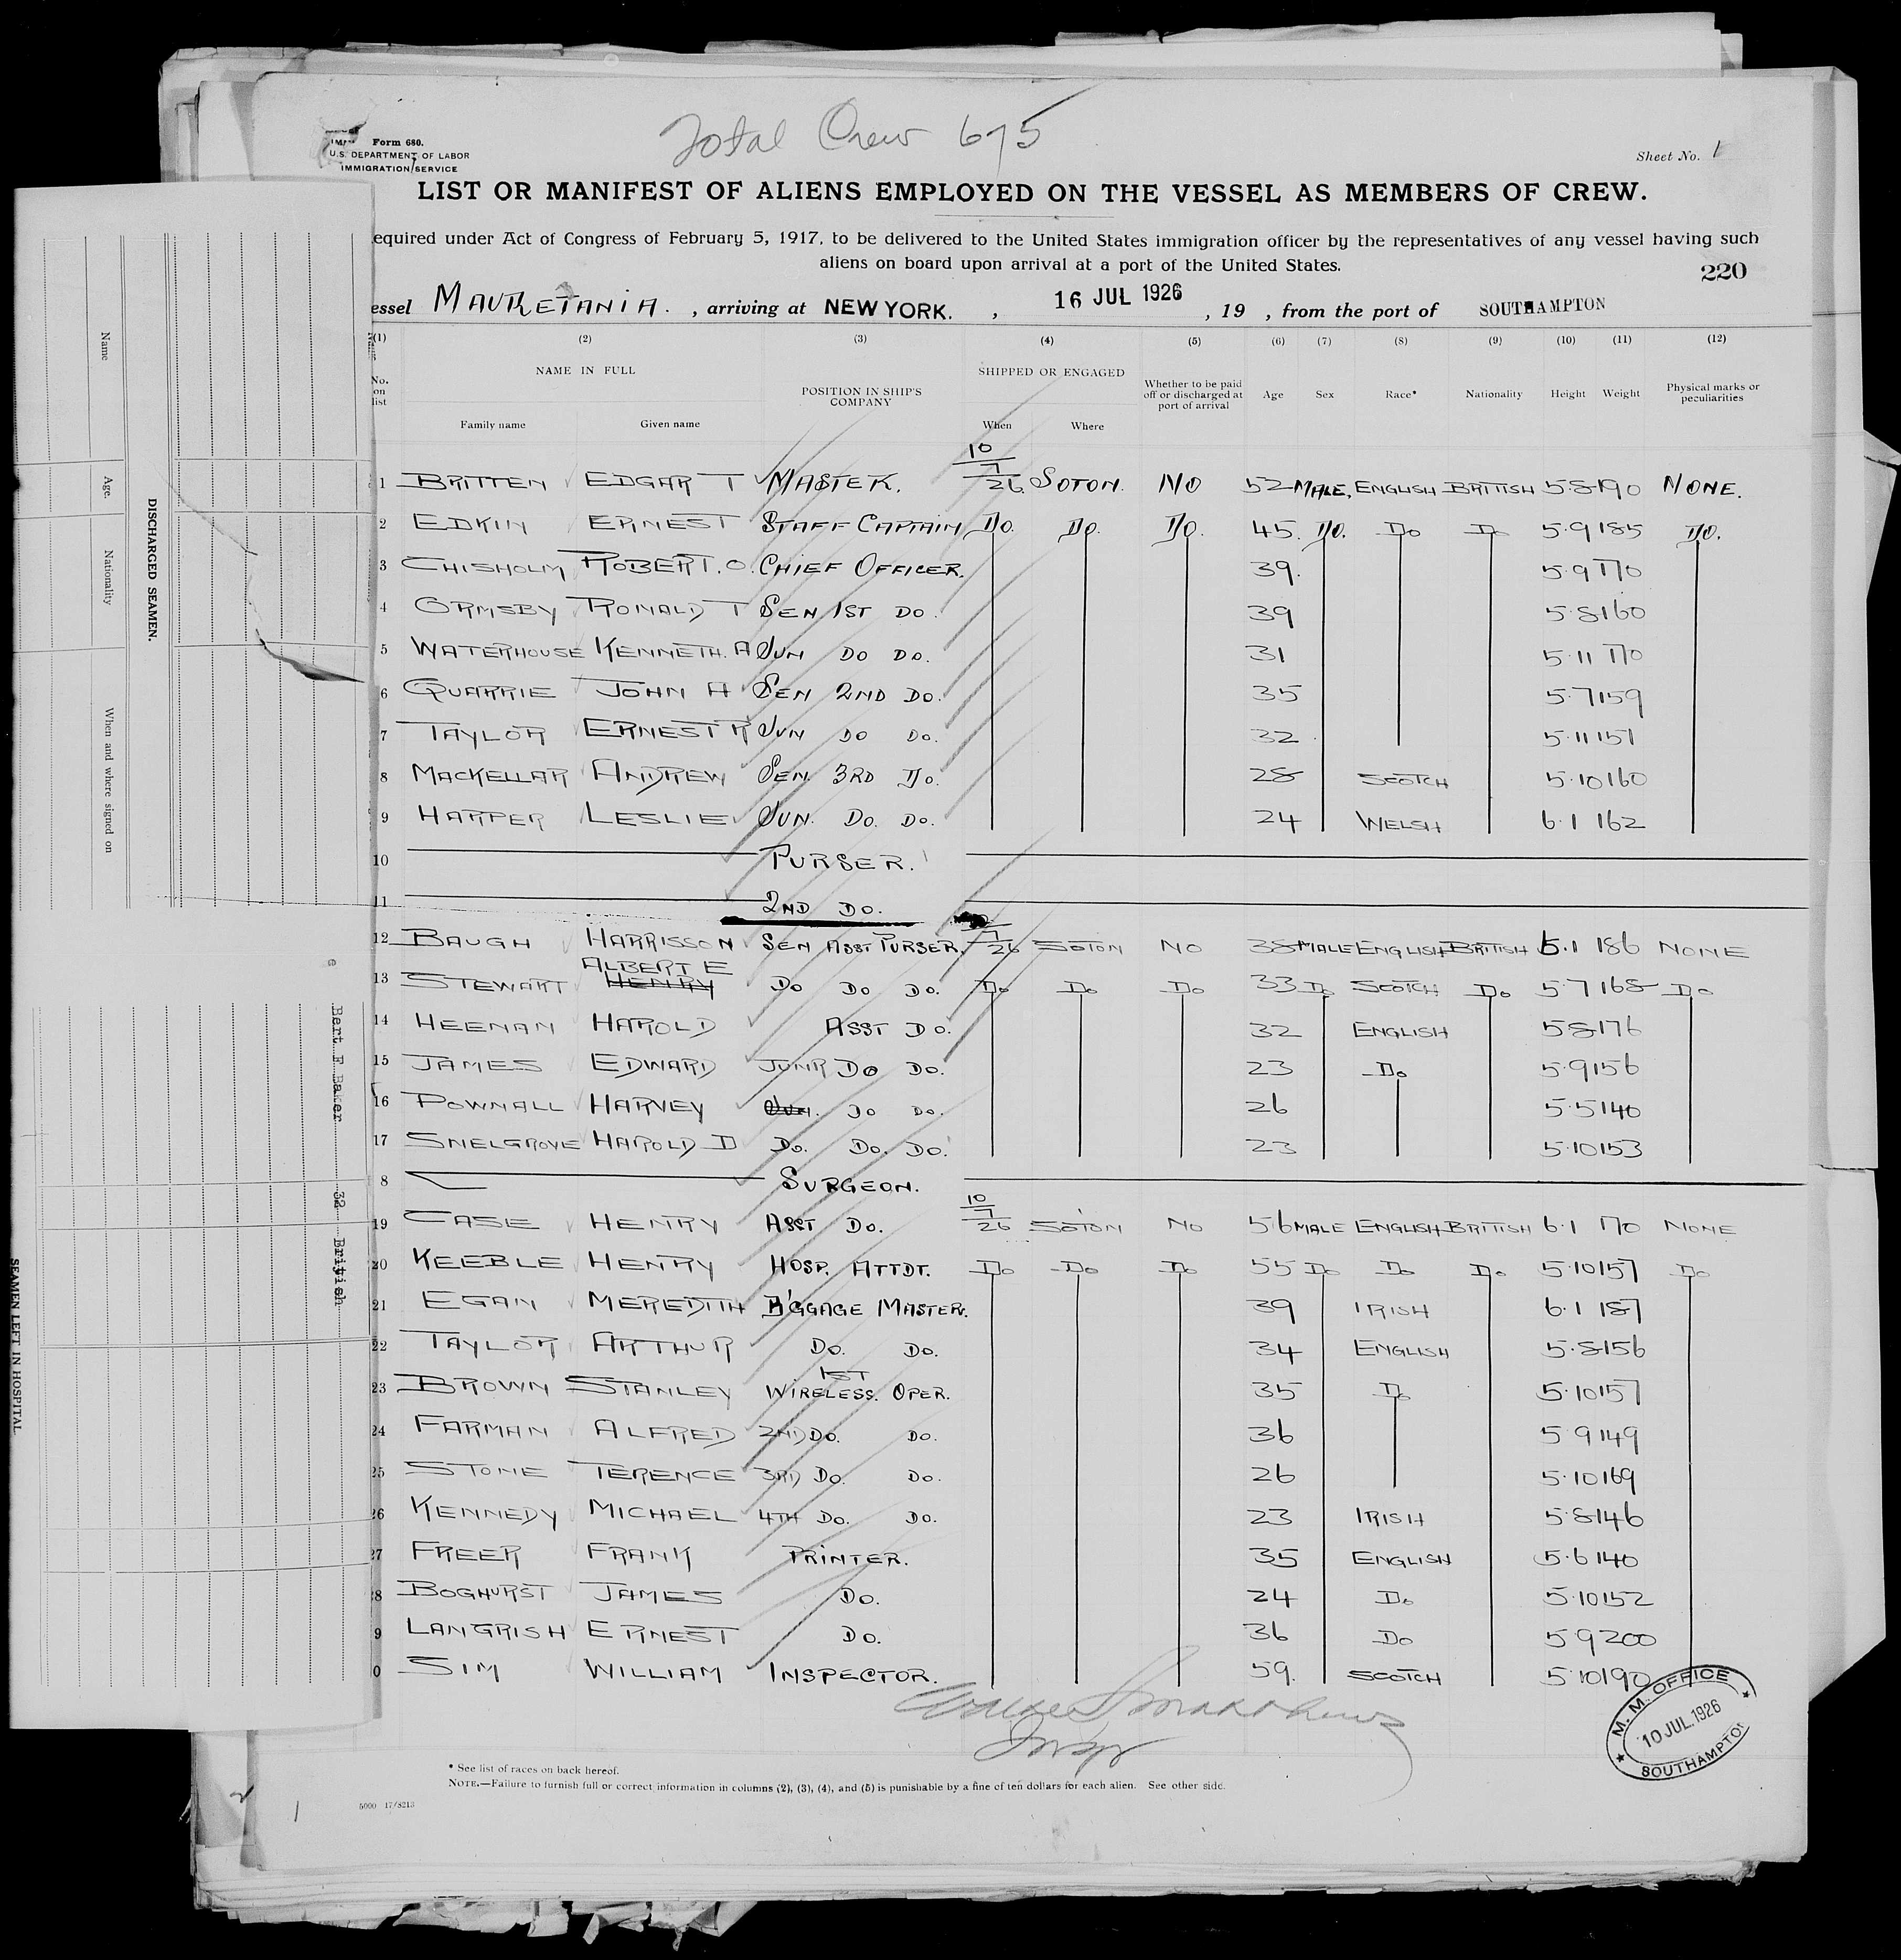 Total Crew 675
Form 680.
U.S. DEPARTMENT OF LABOR
IMMIGRATION SERVICE
Sheet No. 1
LIST OR MANIFEST OF ALIENS EMPLOYED ON THE VESSEL AS MEMBERS OF CREW.
equired under Act of Congress of February 5, 1917, to be delivered to the United States immigration officer by the representatives of any vessel having such
aliens on board upon arrival at a port of the United States.
220
essel MAURETANIA. , arriving at NEW YORK. , 16 JUL 1926 , 19 , from the port of SOUTHAMPTON
(1) (2) (3) (4) (5) (6) (7) (8) (9) (10) (11) (12)
No. on list NAME IN FULL POSITION IN SHIP'S COMPANY SHIPPED OR ENGAGED Whether to be paid off or discharged at port of arrival Age Sex Race* Nationality Height Weight Physical marks or peculiarities
Family name Given name When Where
1 BRITTEN EDGAR T MASTER. 10/7/26 SOTON. NO 52 MALE, ENGLISH BRITISH 5.8 190 NONE.
2 EDKIN ERNEST STAFF CAPTAIN DO. DO. DO. 45. DO. DO DO 5.9 185 DO.
3 CHISHOLM ROBERT.O. CHIEF OFFICER. 39. 5.9 170
4 ORMSBY RONALD T SEN 1ST DO. 39 5.8 160
5 WATERHOUSE KENNETH. A JUN DO DO. 31 5.11 170
6 QUARRIE JOHN A SEN 2ND DO. 35 5.7 159
7 TAYLOR ERNEST R JUN DO DO. 32 5.11 151
8 MACKELLAR ANDREW SEN 3RD DO. 28 SCOTCH 5.10 160
9 HARPER LESLIE JUN. DO. DO. 24 WELSH 6.1 162
10 PURSER.
11 2ND DO.
12 BAUGH HARRISSON SEN ASST PURSER. 7/26 SOTON NO 38 MALE ENGLISH BRITISH 6.1 186 NONE
ALBERT E
13 STEWART HENRY DO DO DO. DO DO DO 33 DO SCOTCH DO 5.7 168 DO
14 HEENAN HAROLD ASST DO. 32 ENGLISH 5.8 176
15 JAMES EDWARD JUNR DO DO. 23 DO 5.9 156
16 POWNALL HARVEY JUN. DO DO. 26 5.5 140
17 SNELGROVE HAROLD D DO. DO. DO. 23 5.10 153
8 SURGEON.
19 CASE HENRY ASST DO. 10/7/26 SOTON NO 56 MALE ENGLISH BRITISH 6.1 170 NONE
20 KEEBLE HENRY HOSP. ATTDT. DO DO DO 55 DO DO DO 5.10 157 DO
21 EGAN MEREDITH B'GGAGE MASTER. 39 IRISH 6.1 187
22 TAYLOR ARTHUR DO. DO. 34 ENGLISH 5.8 156
1ST
23 BROWN STANLEY WIRELESS. OPER. 35 DO 5.10 157
24 FARMAN ALFRED 2ND DO. DO. 36 5 9 149
25 STONE TERENCE 3RD DO. DO. 26 5.10 169
26 KENNEDY MICHAEL 4TH DO. DO. 23 IRISH 5.8 146
27 FREER FRANK PRINTER. 35 ENGLISH 5.6 140
8 BOGHURST JAMES DO. 24 DO 5.10 152
9 LANGRISH ERNEST DO. 36 DO 5 9 200
0 SIM WILLIAM INSPECTOR. 59. SCOTCH 5.10 190
M. M. OFFICE
10 JUL.1926
SOUTHAMPTO
* See list of races on back hereof.
NOTE.—Failure to furnish full or correct information in columns (2), (3), (4), and (5) is punishable by a fine of ten dollars for each alien. See other side.
5000 17/8213
1
DISCHARGED SEAMEN.
Name
Age.
Nationality
When and where signed on
Bert F Baker 32 British
SEAMEN LEFT IN HOSPITAL